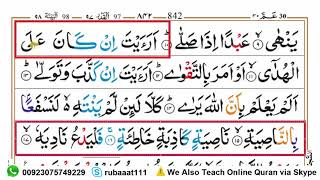 العلق ٩٦ ٨٤٢ 842 عَمَّ ٣٠
يَنْهٰى ۙ﴿٩﴾ عَبْدًا اِذَا صَلّٰى ؕ﴿١٠﴾ اَرَءَيْتَ اِنْ كَانَ عَلَى
الْهُدٰٓى ۙ﴿١١﴾ اَوْ اَمَرَ بِالتَّقْوٰى ؕ﴿١٢﴾ اَرَءَيْتَ اِنْ كَذَّبَ وَ تَوَلّٰى ؕ﴿١٣﴾
اَلَمْ يَعْلَمْ بِاَنَّ اللّٰهَ يَرٰى ؕ﴿١٤﴾ كَلَّا لَئِنْ لَّمْ يَنْتَهِ ۙ لَنَسْفَعًۢا
بِالنَّاصِيَةِ ۙ﴿١٥﴾ نَاصِيَةٍ كَاذِبَةٍ خَاطِئَةٍ ۚ﴿١٦﴾ فَلْيَدْعُ نَادِيَهٗ ۙ﴿١٧﴾
00923075749229 rubaaat111 We Also Teach Online Quran via Skype